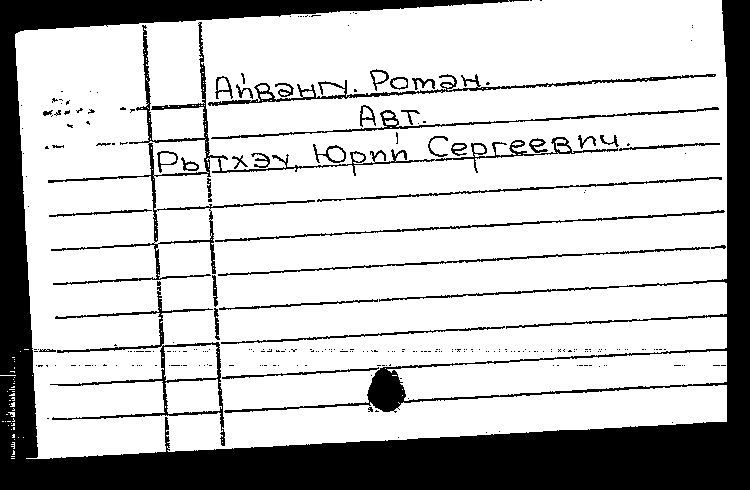 Айвангу. Роман.
Авт.
Рытхэу, Юрий Сергеевич.